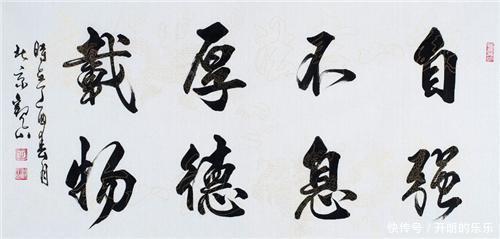 自强
不息
厚德
載物
時在丁酉春月
北京
快传号／开朗的乐乐